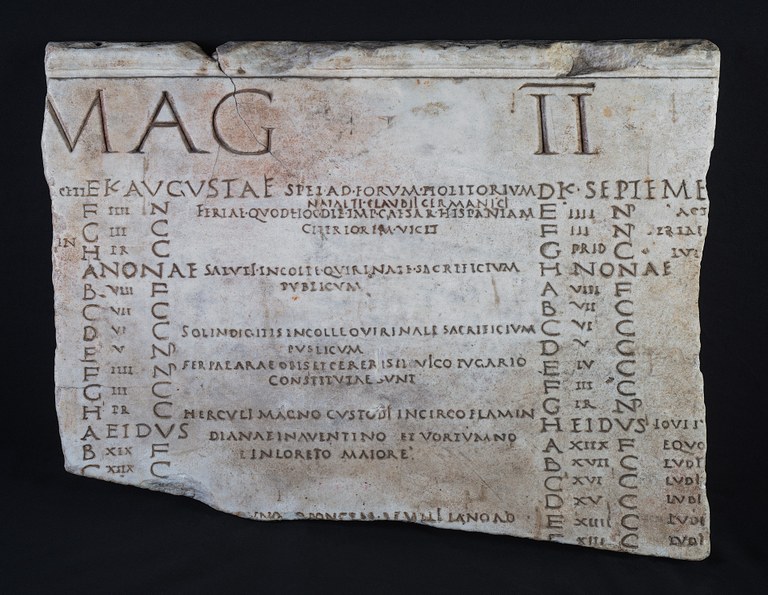 MAG II
E K·AVGVSTAE SPEI·AD·FORVM·HOLITORIVM D K·SEPTEME
NATALTI·CLAVDII·GERMANICI
F IIII N FERIAE·QVOD·HOC·DIE·IMP·CAESAR·HISPANIAM E IIII N
G III C CITERIOREM·VICIT F III
IN
H PR C G PRID C
A NONAE SALVTI·IN·COLLE·QVIRINALE·SACRIFICIVM H NONAE
B VIII F PVBLICVM A VIII F
C VII C B VII C
D VI C SOL·INDIGITIS·IN·COLLE·QVIRINALE·SACRIFICIVM C VI C
E V NP PVBLICVM D V C
F IIII C FER·PAE·ARAE·OPIS·ET·CERERIS·IN·VICO·IVGARIO E IV
G III C CONSTITVTAE·SVNT F III C
H PR C HERCVLI·MAGNO·CVSTODI·IN·CIRCO·FLAMIN G PR NP
A EIDVS DIANAE·IN·AVENTINO·ET·VORTVMNO H EIDVS IOVI
B XIX F IN·LORETO·MAIORE A XIIX F EQVO
C XIIX C B XVII C LVDI
C XVI C LVDI
D XV C LVDI
E XIIII C LVDI
F XIII C LVDI